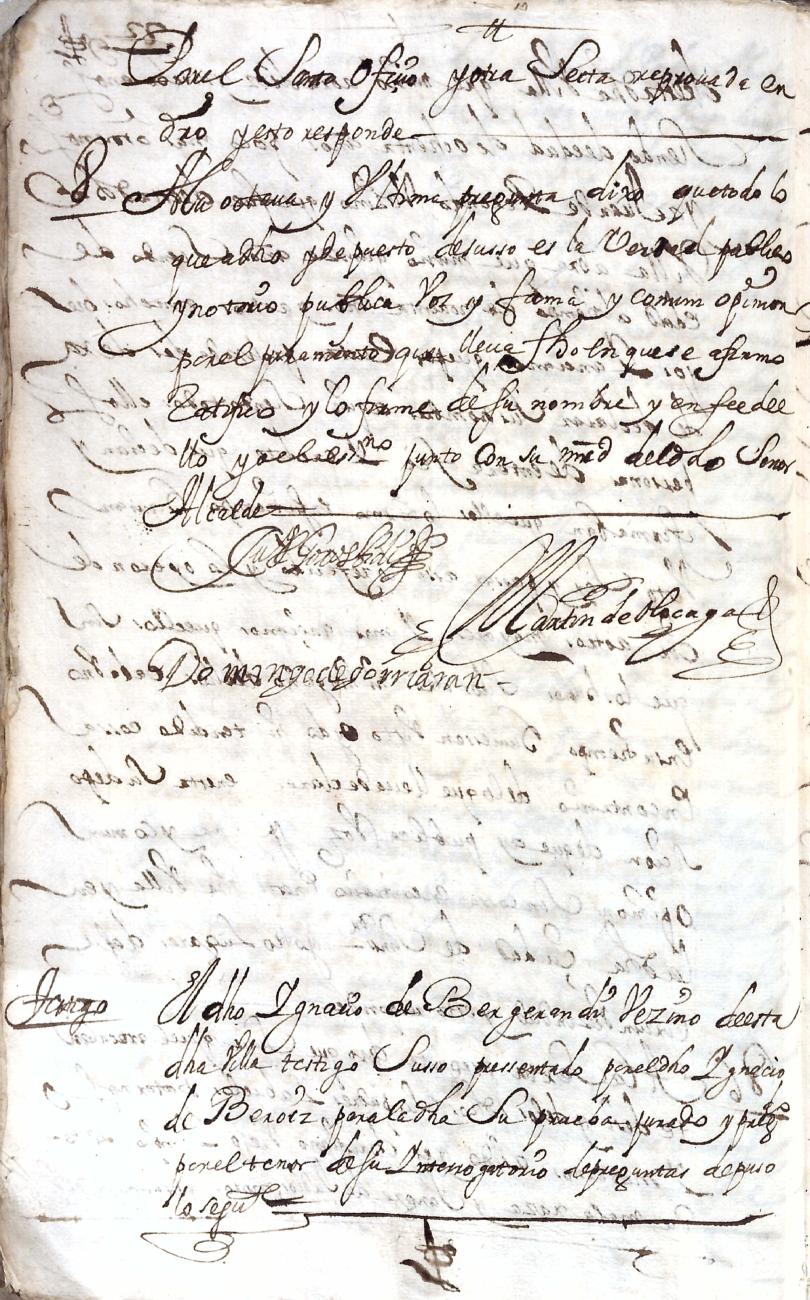 Por el Santo ofiçio y otra Secta reprouada en
dro y esto responde
8 A la octaua y Vltima pregunta dixo que todo lo
que a dho y depuesto de susso es la Verdad publico
y notorio publica Voz y fama y comun opinion
por el juramento que lleua fho en que se afirmo
Ratifico y lo firme de su nombre y en fee de e
llo yo el essno junto Con su mrd del dho Señor
Alcalde
Martin de olaçaga
Domingo de gorriaran
Testigo El dho Ygnaçio de Bergerandi Vezino de esta
dha Villa testigo Susso pressentado por el dho Ygnacio
de Beroiz para la dha Su prueba jurado y pregdo
por el tenor de su Ynterrogatorio de preguntas depuso
lo seguite